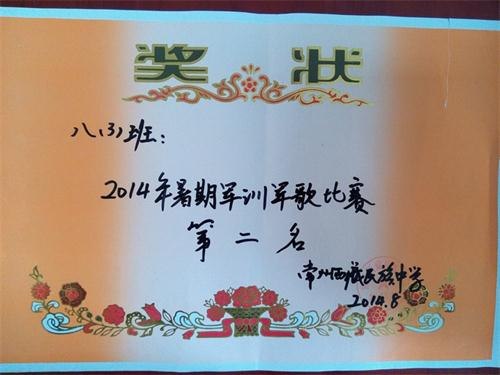 奖 状
八(3)班:
2014年暑期军训军歌比赛
第二名
常州西藏民族中学
2014.8